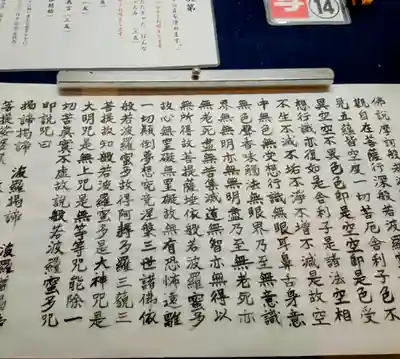 第
14
佛說摩訶般若波羅蜜
觀自在菩薩行深般若波羅
見五蘊皆空度一切苦厄舍利子色不
異空空不異色色即是空空即是色受
想行識亦復如是舍利子是諸法空相
不生不滅不垢不淨不增不減是故空
中無色無受想行識無眼耳鼻舌身意
無色聲香味觸法無眼界乃至無意識
界無無明亦無無明盡乃至無老死亦
無老死盡無苦集滅道無智亦無得以
無所得故菩提薩埵依般若波羅蜜多
故心無罣礙無罣礙故無有恐怖遠離
一切顛倒夢想究竟涅槃三世諸佛依
般若波羅蜜多故得阿耨多羅三藐三
菩提故知般若波羅蜜多是大神咒是
大明咒是無上咒是無等等咒能除一
切苦真實不虛故說般若波羅蜜多咒
即說咒曰
揭諦揭諦 波羅揭諦 波羅僧揭諦
菩提娑婆